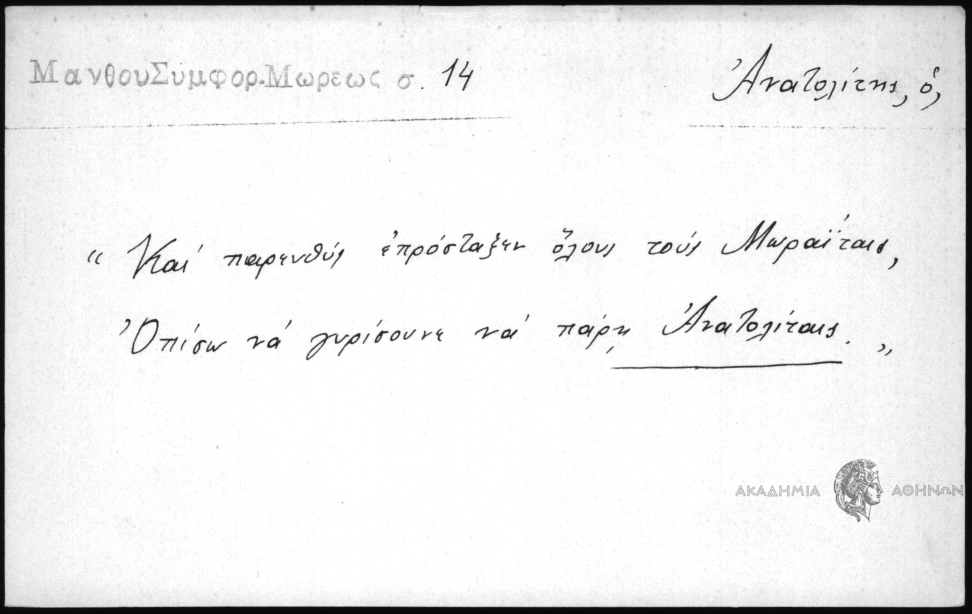 ΜανθουΣυμφορ.Μωρεως σ. 14
Ἀνατολίτης, ὁ,
“ Καί παρευθύς ἐπρόσταξεν ὅλους τούς Μωραΐταις,
Ὀπίσω νά γυρίσουνε νά πάρῃ Ἀνατολίταις. „
ΑΚΑΔΗΜΙΑ ΑΘΗΝΩΝ